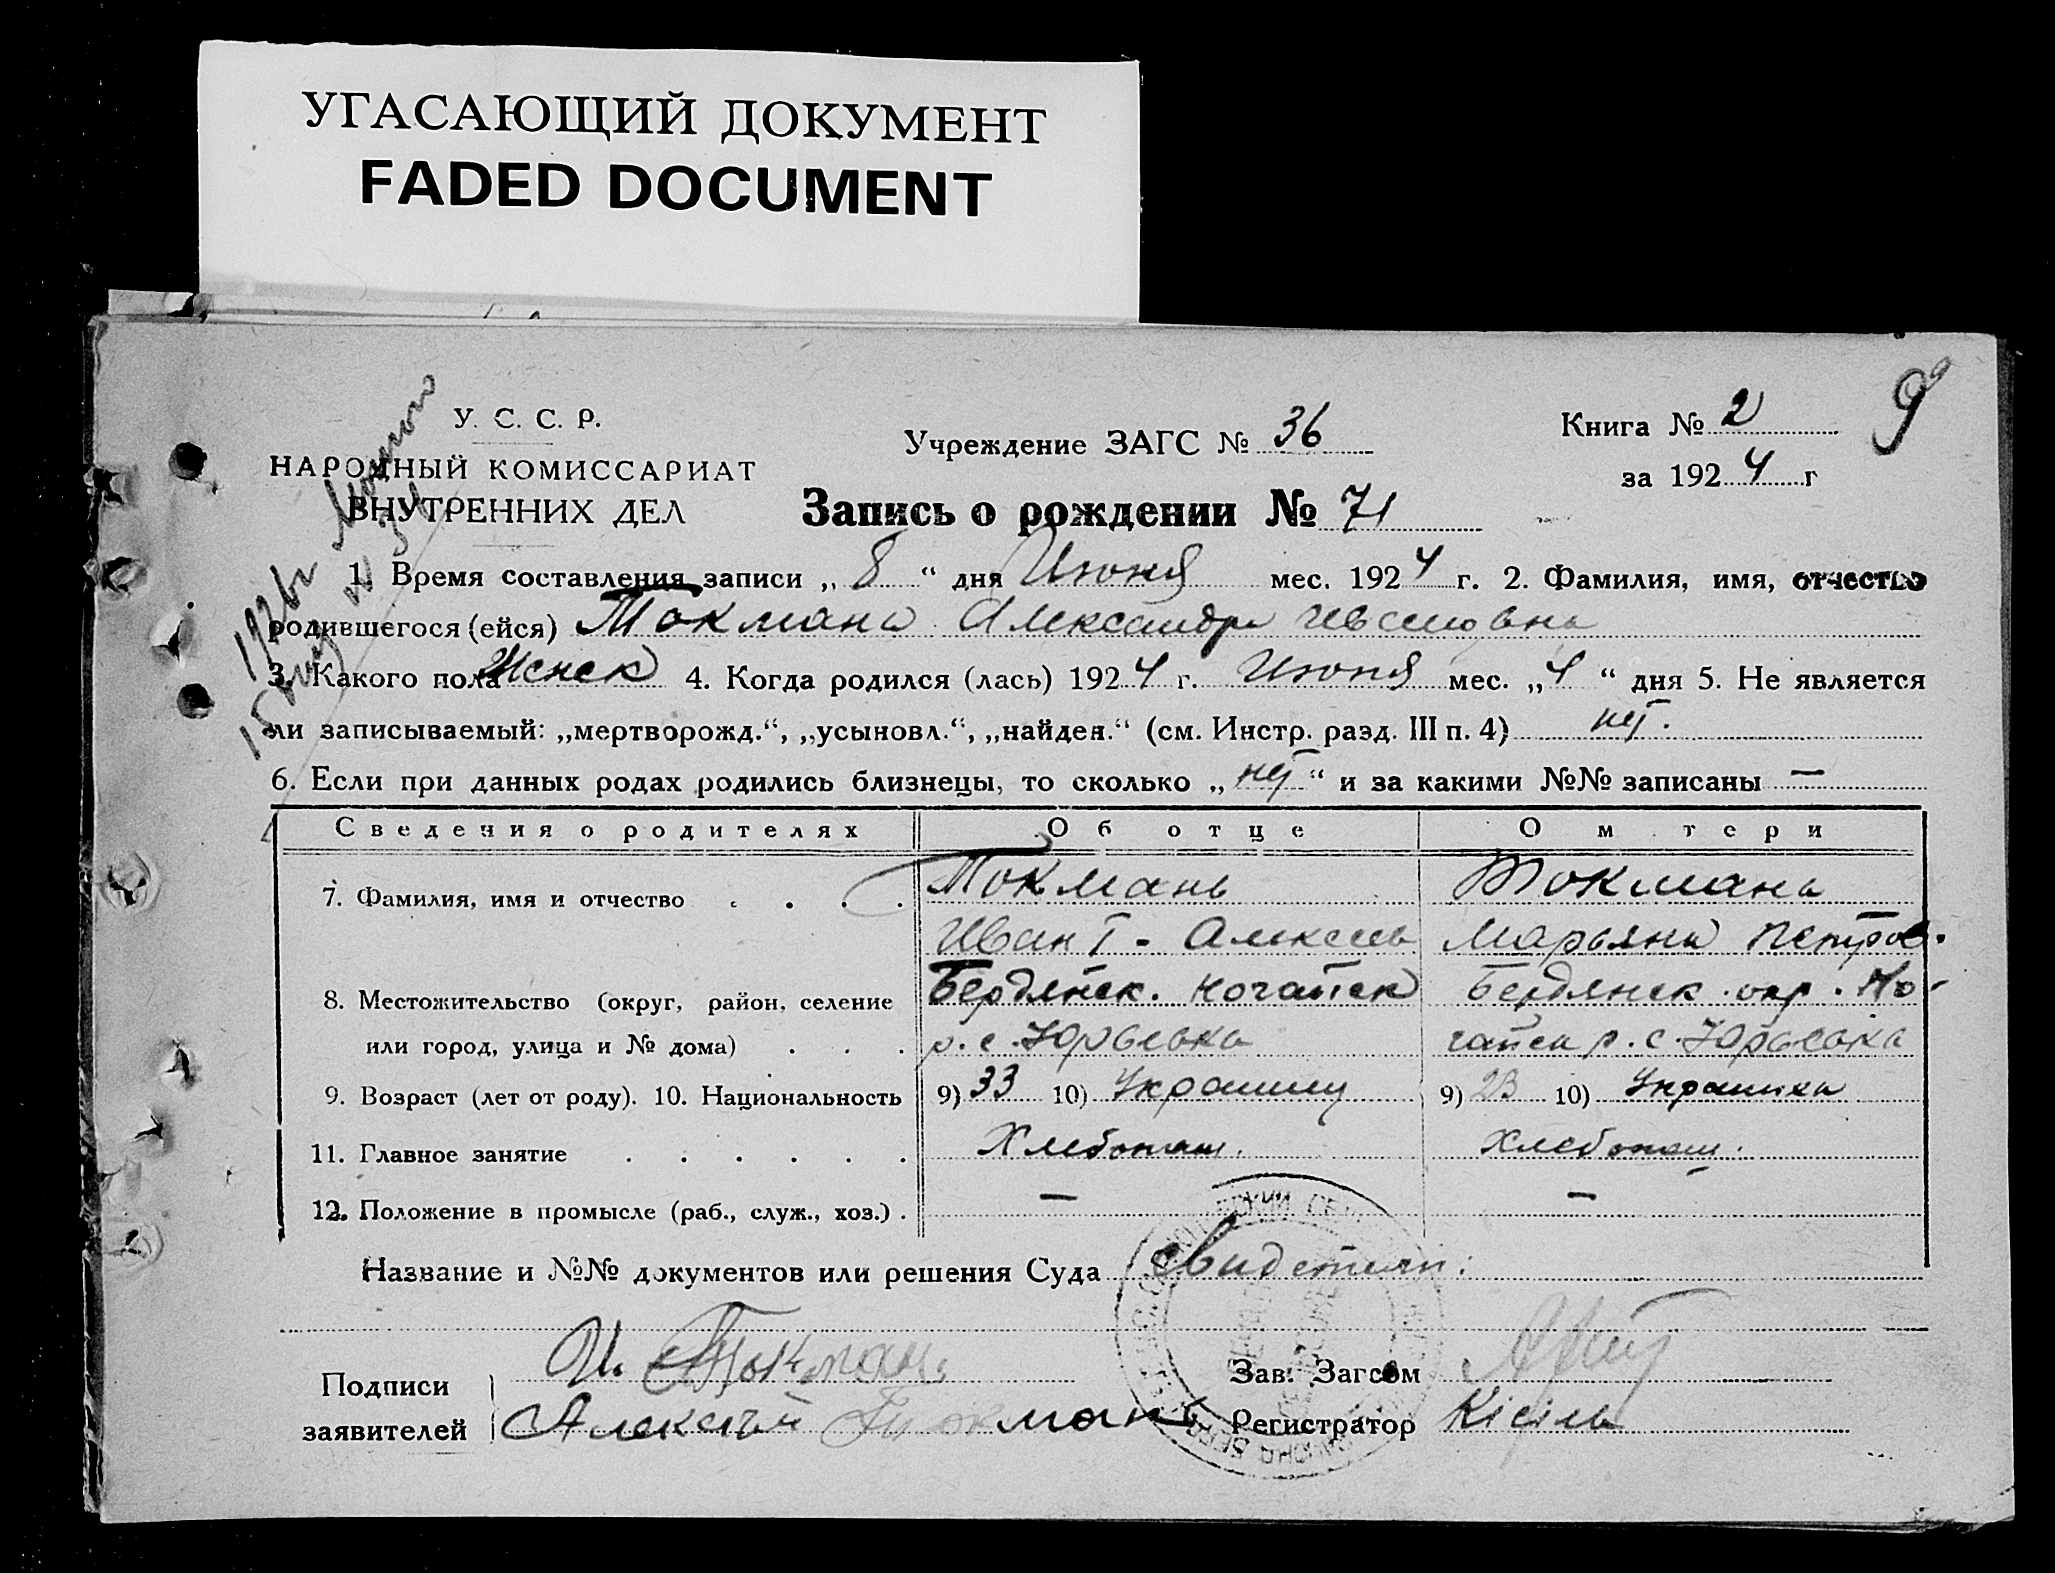 УГАСАЮЩИЙ ДОКУМЕНТ
FADED DOCUMENT
9
У. С. С. Р.
НАРОДНЫЙ КОМИССАРИАТ
ВНУТРЕННИХ ДЕЛ
Учреждение ЗАГС № 36
Книга № 2
за 1924 г
Запись о рождении № 71
1. Время составления записи „ 8 “ дня Июня мес. 1924 г. 2. Фамилия, имя, отчество
родившегося (ейся) Токмань Александра Ивановна
3. Какого пола Женск 4. Когда родился (лась) 1924 г. Июня мес. „ 4 “ дня 5. Не является
ли записываемый: „мертворожд.“, „усыновл.“, „найден.“ (см. Инстр. разд. III п. 4) нет.
6. Если при данных родах родились близнецы, то сколько „ нет “ и за какими №№ записаны —
Сведения о родителях Об отце О м тери
7. Фамилия, имя и отчество Токмань Токмань
Иван Алексеев Марьяна Петров.
8. Местожительство (округ, район, селение Бердянск. Ногайск Бердянск. окр. Но-
или город, улица и № дома) р. с. Юрьевка гайск р. с. Юрьевка
9. Возраст (лет от роду). 10. Национальность 9) 33 10) Украинец 9) 23 10) Украинка
11. Главное занятие Хлебопаш. Хлебопаш.
12. Положение в промысле (раб., служ., хоз.) — —
Название и №№ документов или решения Суда Свидетели:
Подписи И. Токмань Зав. Загсом
заявителей Алексей Токмань Регистратор Кісіль